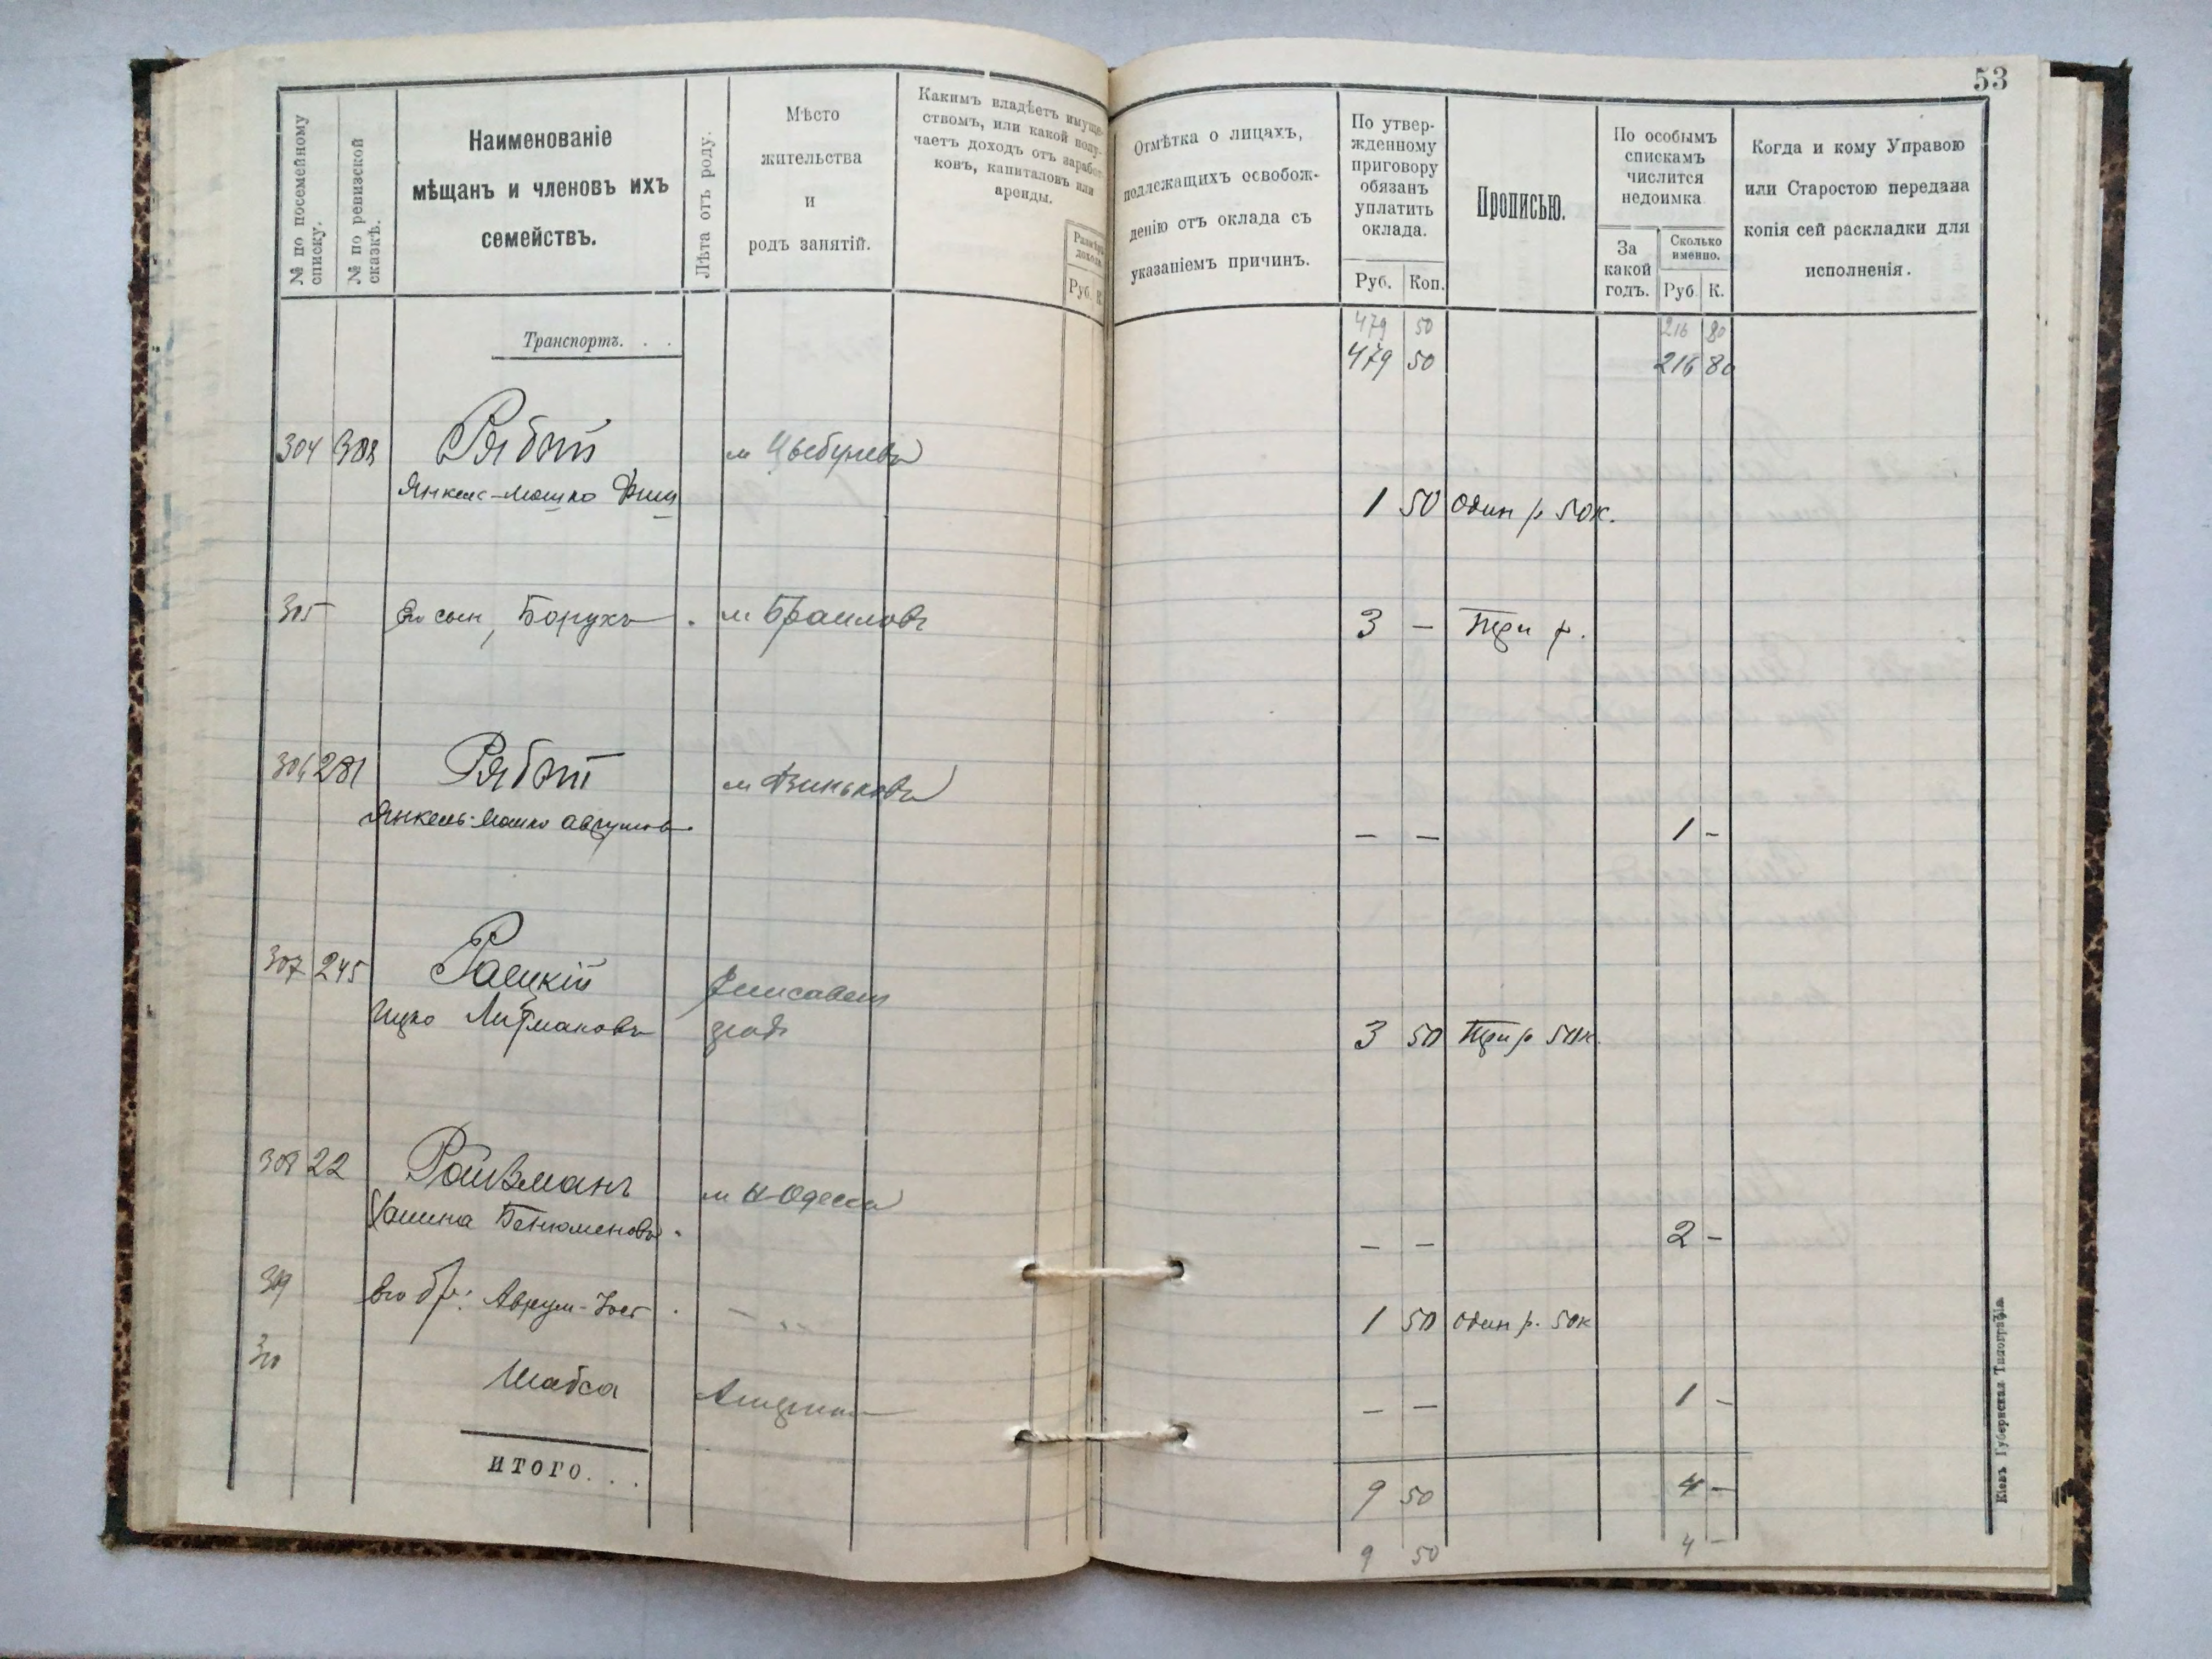 53
№ по посемейному списку.
№ по ревизской сказкѣ.
Наименованіе
мѣщанъ и членовъ ихъ
семействъ.
Лѣта отъ роду.
Мѣсто
жительства
и
родъ занятій.
Какимъ владѣетъ имуще-
ствомъ, или какой полу-
чаетъ доходъ отъ зарабо
ковъ, капиталовъ или
аренды.
Руб. К
Отмѣтка о лицахъ,
подлежащихъ освобож-
денію отъ оклада съ
указаніемъ причинъ.
По утвер-
жденному
приговору
обязанъ
уплатить
оклада.
Руб. Коп.
Прописью.
По особымъ
спискамъ
числится
недоимка
За
какой
годъ.
Сколько
именно.
Руб К.
Когда и кому Управою
или Старостою передана
копія сей раскладки для
исполненія.
Транспортъ. . .
479 50 216 80
479 50 216 80
304 Рябой м Цыбулевъ
Янкель-Мошко
1 50 Один р 50к.
305 Его сын, Борухъ . м Браиловъ 3 — Три р.
306 281 Рябой м Зиньковъ
Янкель-Мошко
— — 1 -
307 245 Раецкій Елисавет
Ицко Литмановъ град
3 50 Три р 50к.
308 22 Ройзманъ м Одесса
Бенюменовъ.
— — 2 -
309 Его бр: Аврум- . — 〃 1 50 Один р. 50к
310 Шабса — — 1 -
ИТОГО. . .
9 50 4 -
9 50 4 -
Кіевъ Губернская Типографія.